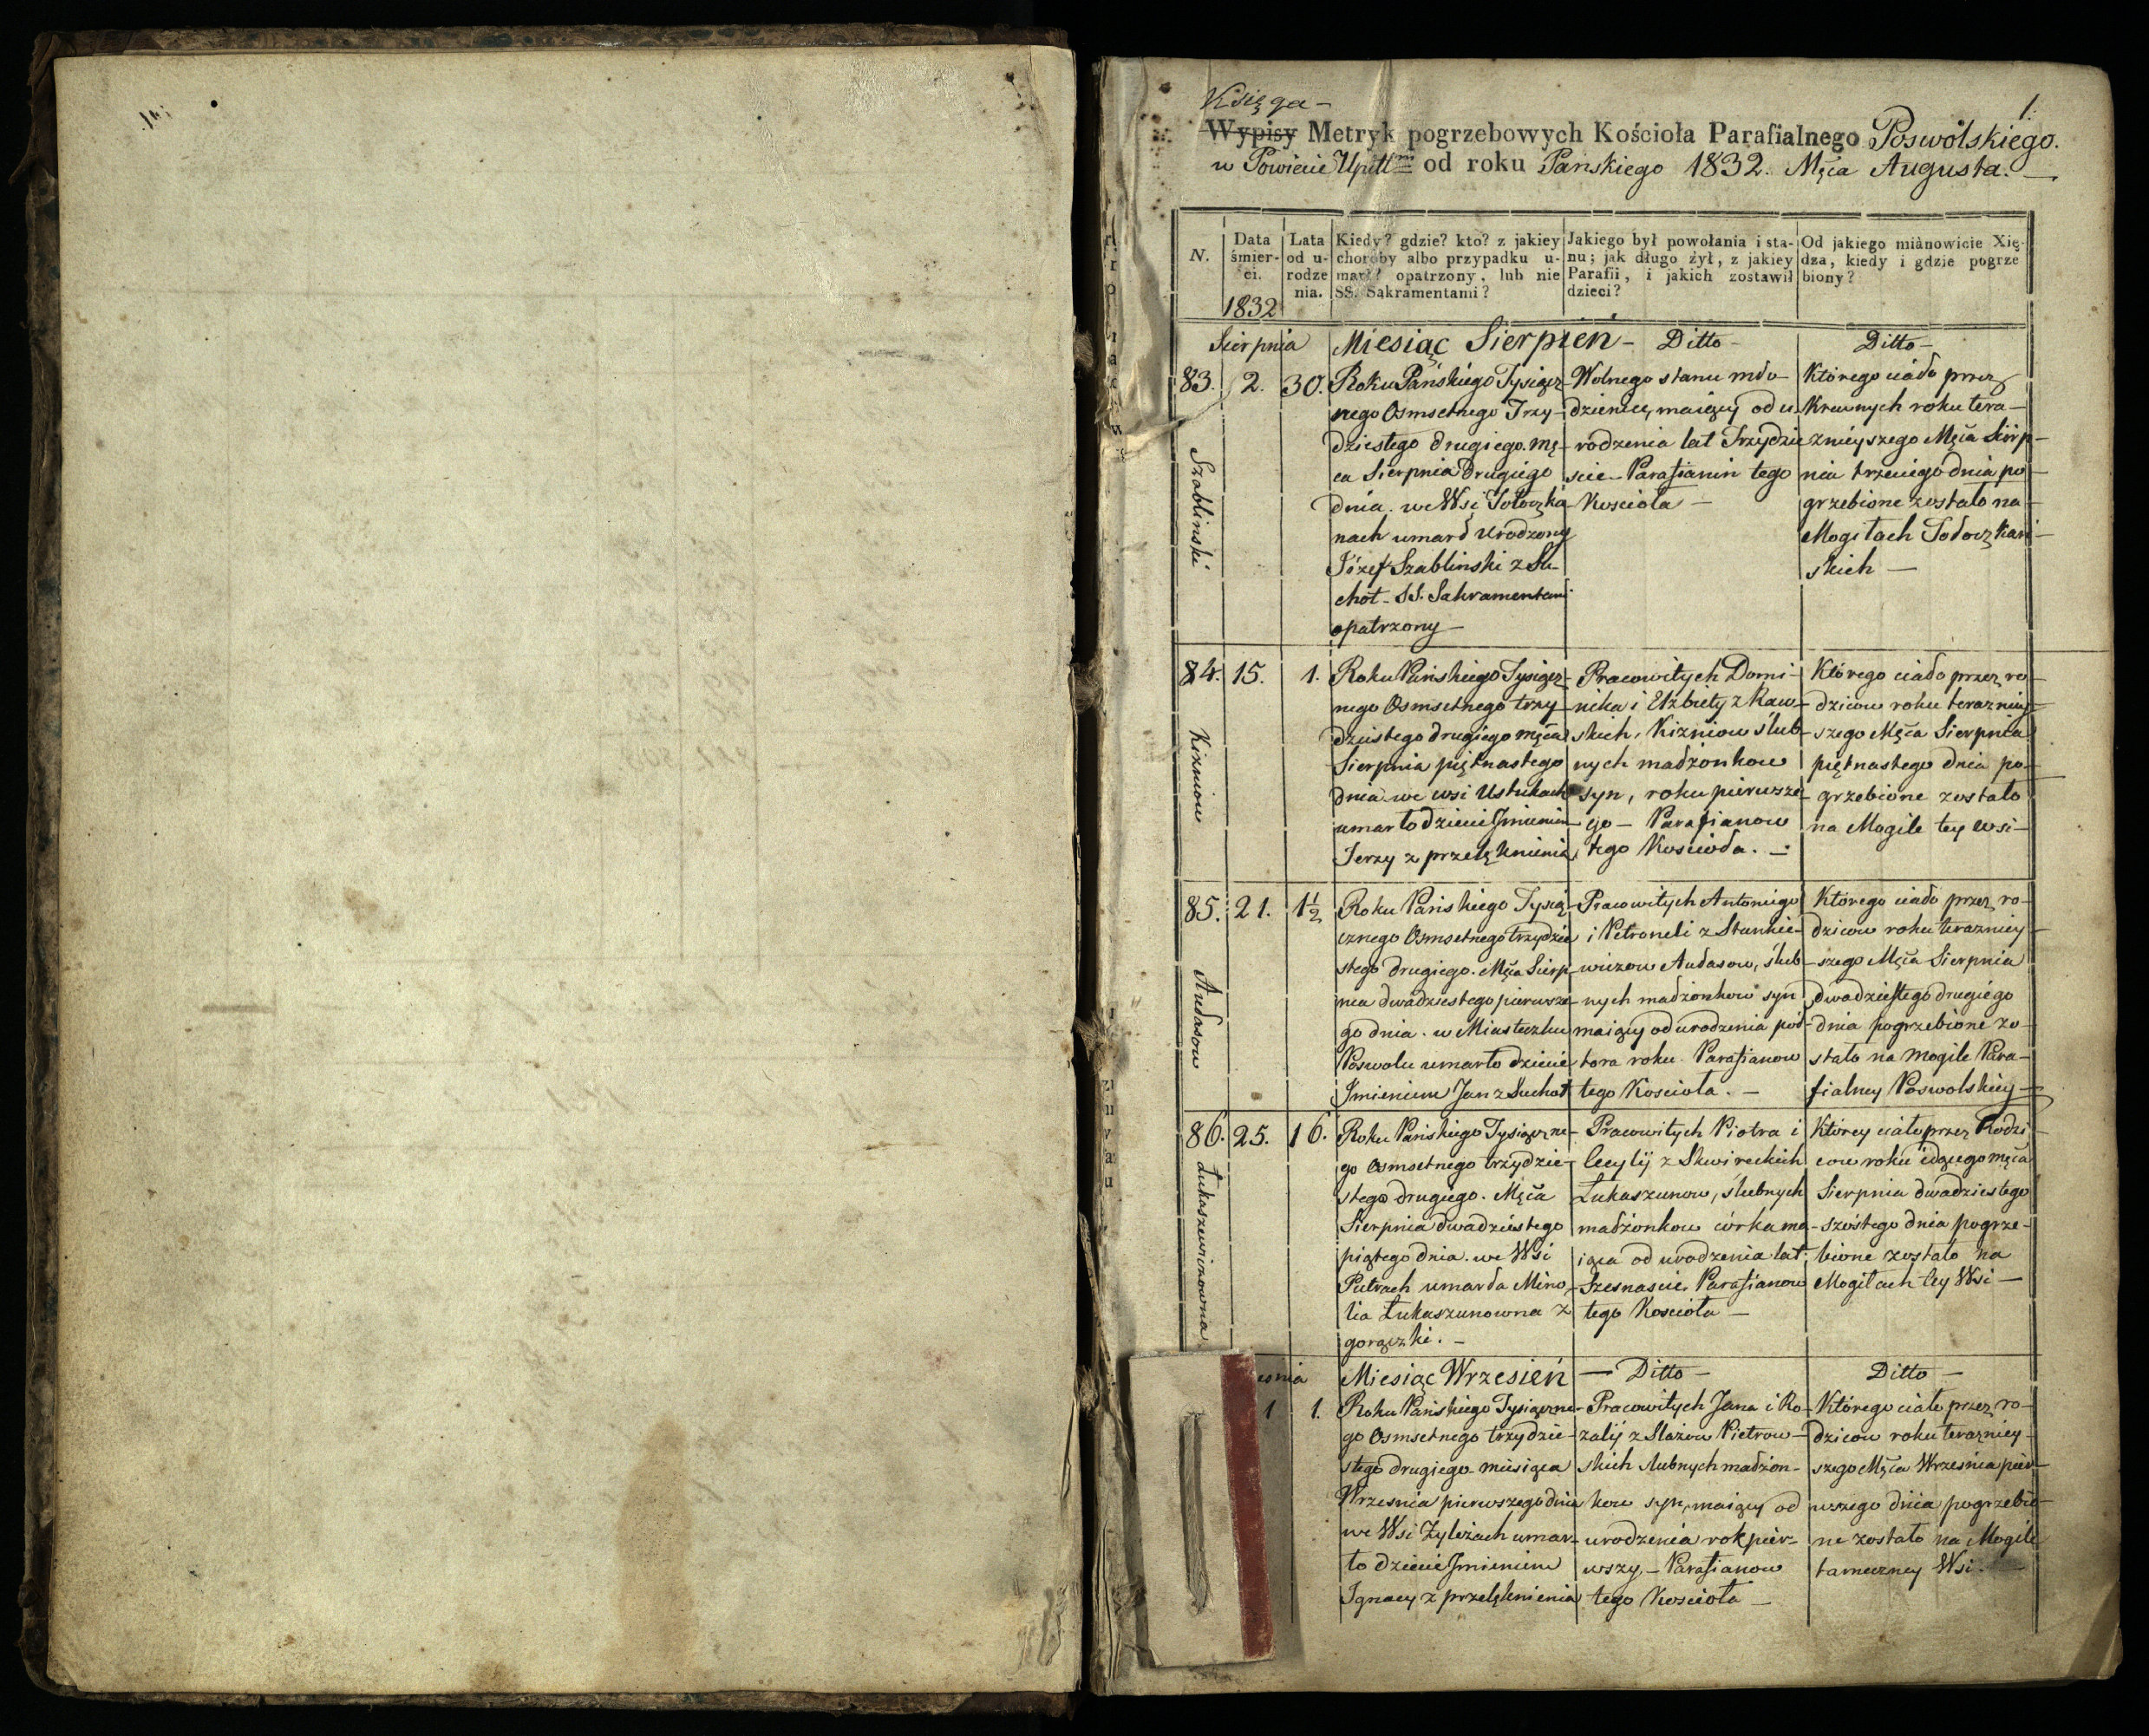 1.
Księga -
Wypisy Metryk pogrzebowych Kościoła Parafialnego Poswolskiego.
w Powiecie Upitt.m od roku Panskiego 1832. Męca Augusta. —
N.
Data śmier-
ci.
1832
Lata
od u-
rodze
nia.
Kiedy? gdzie? kto? z jakiey
choroby albo przypadku u-
marł? opatrzony, lub nie
SS. Sakramentami?
Jakiego był powołania i sta-
nu; jak długo żył, z jakiey
Parafii, i jakich zostawił
dzieci?
Od jakiego miànowicie Xię-
dza, kiedy i gdzie pogrze
biony?
Sierpnia
Miesiąc Sierpień - Ditto -
Ditto -
83.
Szablinski
2.
30.
Roku Pańskiego Tysiącz-
nego Osmsetnego Trzy-
dziestego drugiego. mę-
ca Sierpnia Drugiego
dnia. we Wsi Tołoczka
nach umarł Urodzony
Józef Szablinski z Su-
chot - SS. Sakramentami
opatrzony —
Wolnego stanu mło-
dzieniec, maiący od u-
rodzenia lat Trzydzie
ście - Parafianin tego
Kosciola —
Którego ciało przez
Krewnych roku tera-
znieyszego Męca Sierp-
nia trzeciego dnia po-
grzebione zostało na
Mogiłach Tołoczkań-
skich —
84.
Kizniow
15.
1.
Roku Pańskiego Tysiącz-
nego Osmsetnego trzy-
dziestego drugiego męca
Sierpnia piętnastego
dnia we wsi Ustukach
umarło dziecie Jmieniem
Jerzy z przelęknienia
Pracowitych Domi-
nika i Elżbiety z Raw-
skich, Kizniow ślub-
nych małżonkow
syn, roku pierwsze-
go - Parafianow
tego Kosciola. —
Którego ciało przez ro-
dzicow roku terazniey-
szego Męca Sierpnia
piętnastego dnia po-
grzebione zostało
na Mogile tey wsi -
85.
Audasow
21.
1½
Roku Pańskiego Tysią-
cznego Osmsetnego trzydzie
stego drugiego. Męca Sierp-
nia dwudziestego pierwsze-
go dnia. w Miasteczku
Poswolu umarło dziecie
Jmieniem Jan z Suchot
Pracowitych Antoniego
i Petroneli z Stankie-
wiczow Audasow, ślub-
nych małżonkow syn
maiący od urodzenia poł-
tora roku. Parafianow
tego Kosciola. —
Którego ciało przez ro-
dzicow roku terazniey-
szego Męca Sierpnia
dwadziestego drugiego
dnia pogrzebione zo-
stało na mogile Para-
fialney Poswolskiey —
86.
Łukaszewiczowna
25.
16.
Roku Pańskiego Tysiączne-
go Osmsetnego trzydzie-
stego drugiego. Męca
Sierpnia dwadziestego
piątego dnia. we Wsi
Putrach umarła Mino-
lia Łukaszunowna z
gorączki. —
Pracowitych Piotra i
Cecylij z Skwireckich
Łukaszunow, ślubnych
małżonkow córka ma-
iąca od urodzenia lat
Szesnascie. Parafianow
tego Kosciola —
Którey ciało przez Rodzi-
cow roku idącego męca
Sierpnia dwadziestego
szostego dnia pogrze-
bione zostało na
Mogiłach tey Wsi —
esnia
Miesiąc Wrzesień — Ditto —
Ditto —
1
1.
Roku Pańskiego Tysiączne-
go Osmsetnego trzydzie-
stego drugiego miesiąca
Wrzesnia pierwszego dnia
we Wsi Zyleżach umar-
ło dziecie Jmieniem
Ignacy z przelęknienia
Pracowitych Jana i Ro-
zalij z Slażow Pietrow-
skich slubnych małżon-
kow syn, maiący od
urodzenia rok pier-
wszy, - Parafianow
tego Kosciola —
Którego ciało przez ro-
dzicow roku terazniey-
szego Męca Wrzesnia pier-
wszego dnia pogrzebio-
ne zostało na Mogile
tameczney Wsi. —